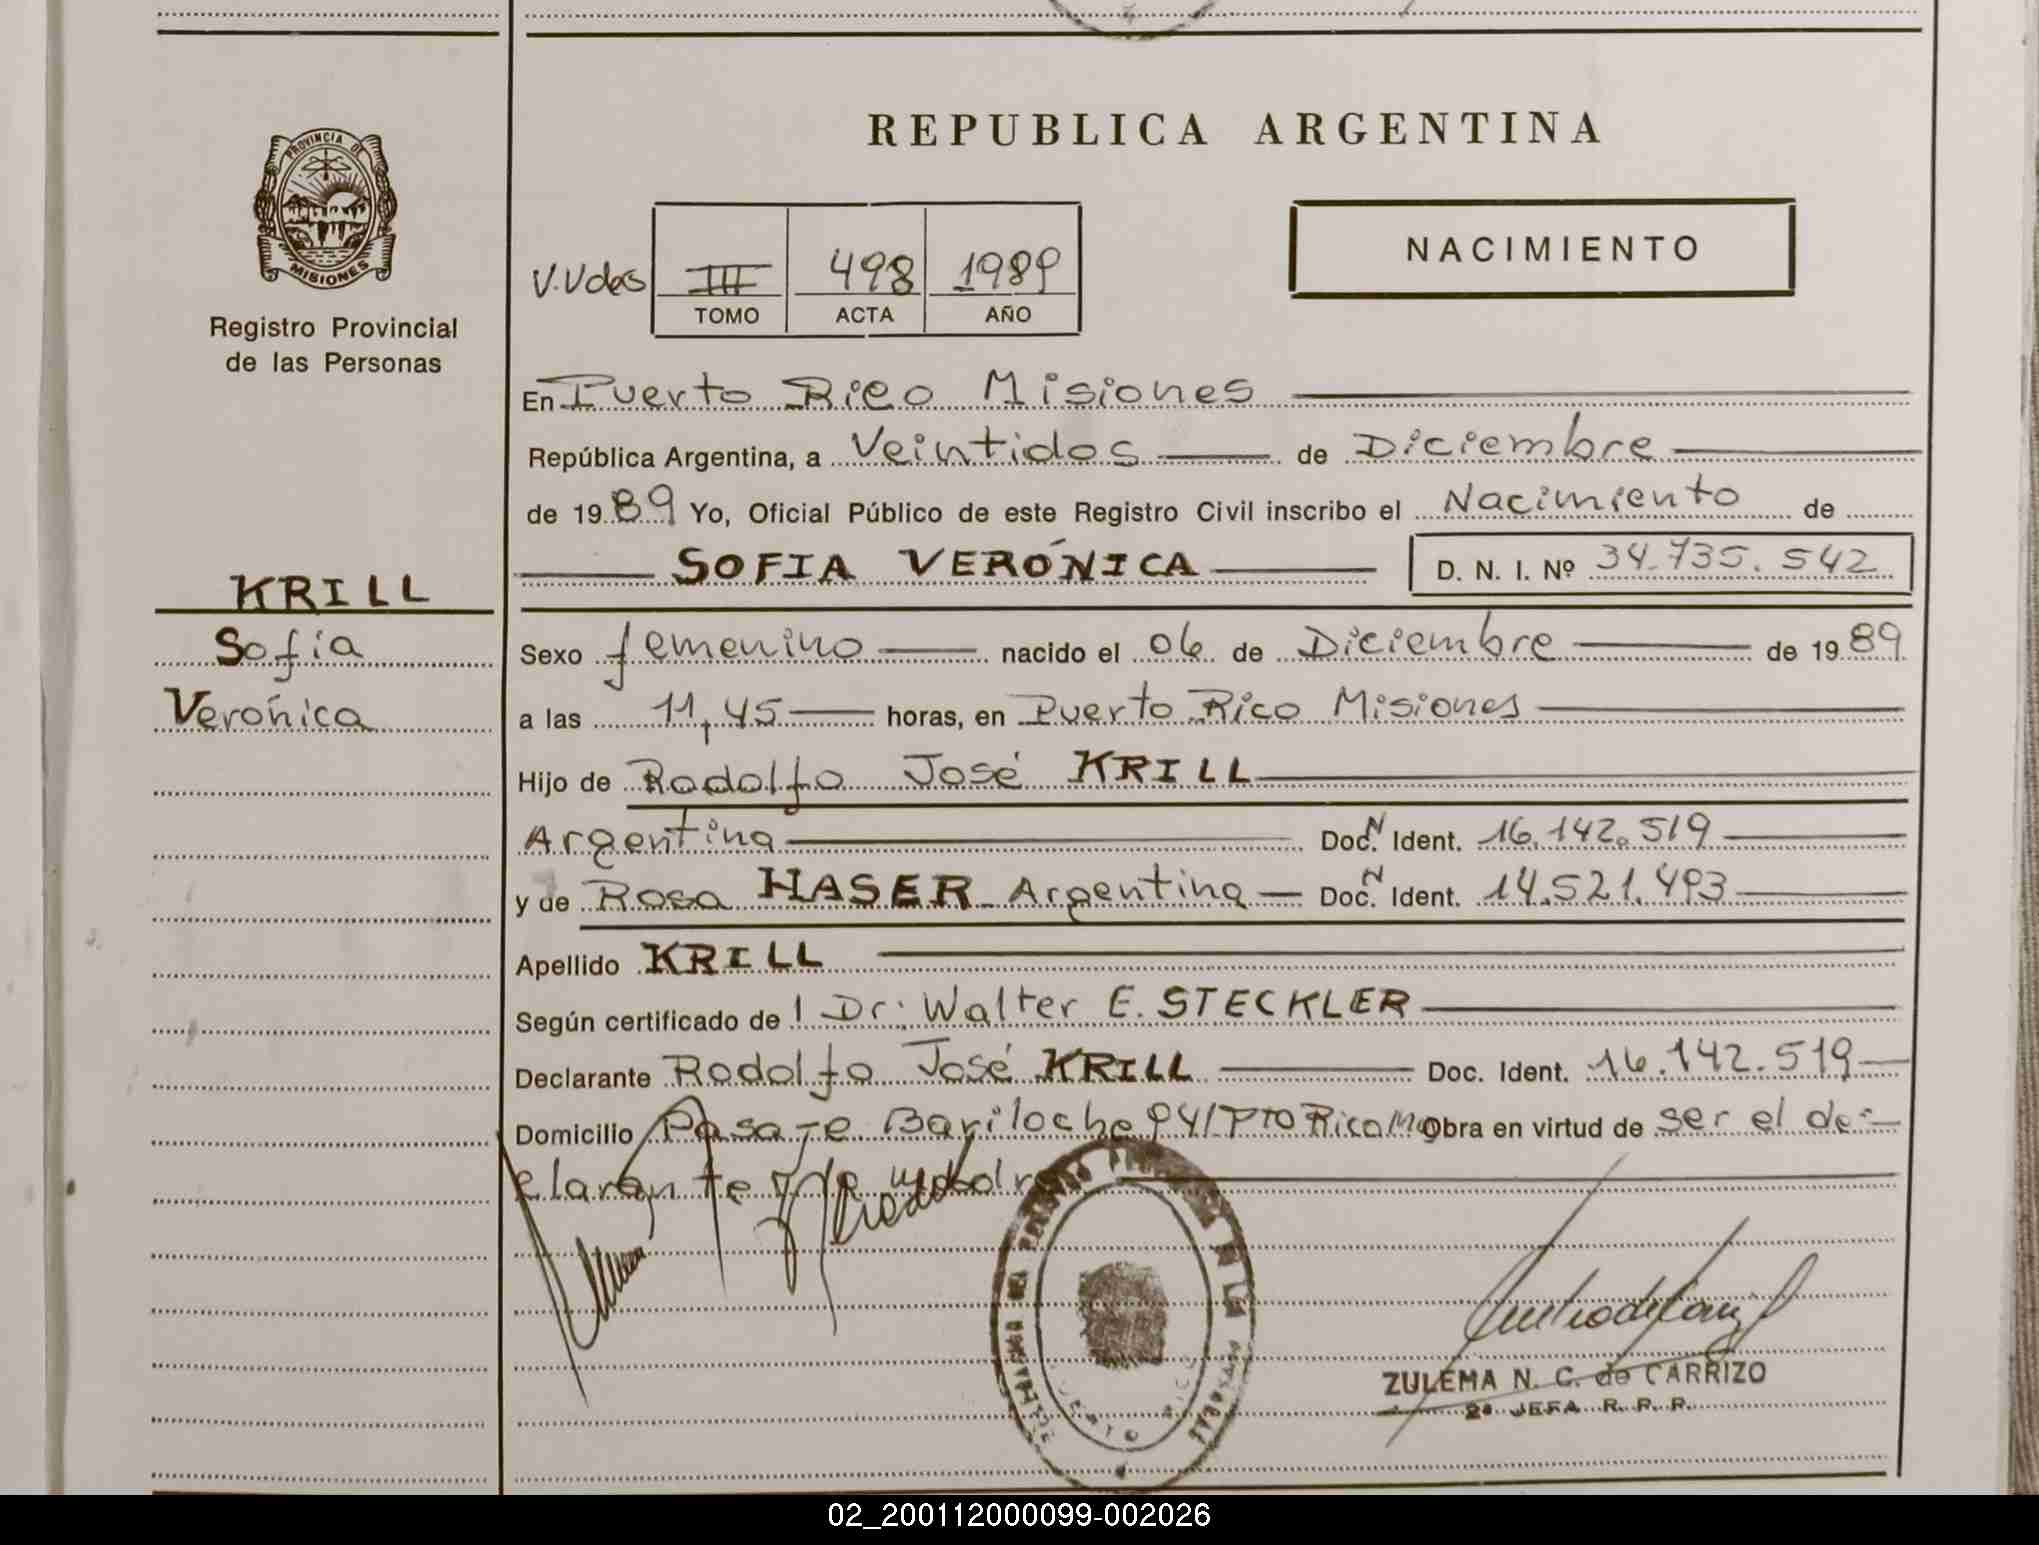 PROVINCIA DE
MISIONES
Registro Provincial
de las Personas
KRILL
Sofía
Verónica
REPUBLICA ARGENTINA
NACIMIENTO
V.Vdes III 498 1989
TOMO ACTA AÑO
En Puerto Rico Misiones
República Argentina, a Veintidos de Diciembre
de 1989 Yo, Oficial Público de este Registro Civil inscribo el Nacimiento de
SOFIA VERÓNICA D. N. I. Nº 34.735.542
Sexo femenino nacido el 06 de Diciembre de 1989
a las 11,45 horas, en Puerto Rico Misiones
Hijo de Rodolfo José KRILL
Argentina Doc. N Ident. 16.142.519
y de Rosa HASER Argentina Doc. N Ident. 14.521.493
Apellido KRILL
Según certificado de l Dr: Walter E. STECKLER
Declarante Rodolfo José KRILL Doc. Ident. 16.142.519
Domicilio Pasaje Bariloche 941 Pto Rico Obra en virtud de ser el de-
clarante
PUERTO RICO
ZULEMA N. C. de CARRIZO
2ª JEFA R. P. P.
02_200112000099-002026